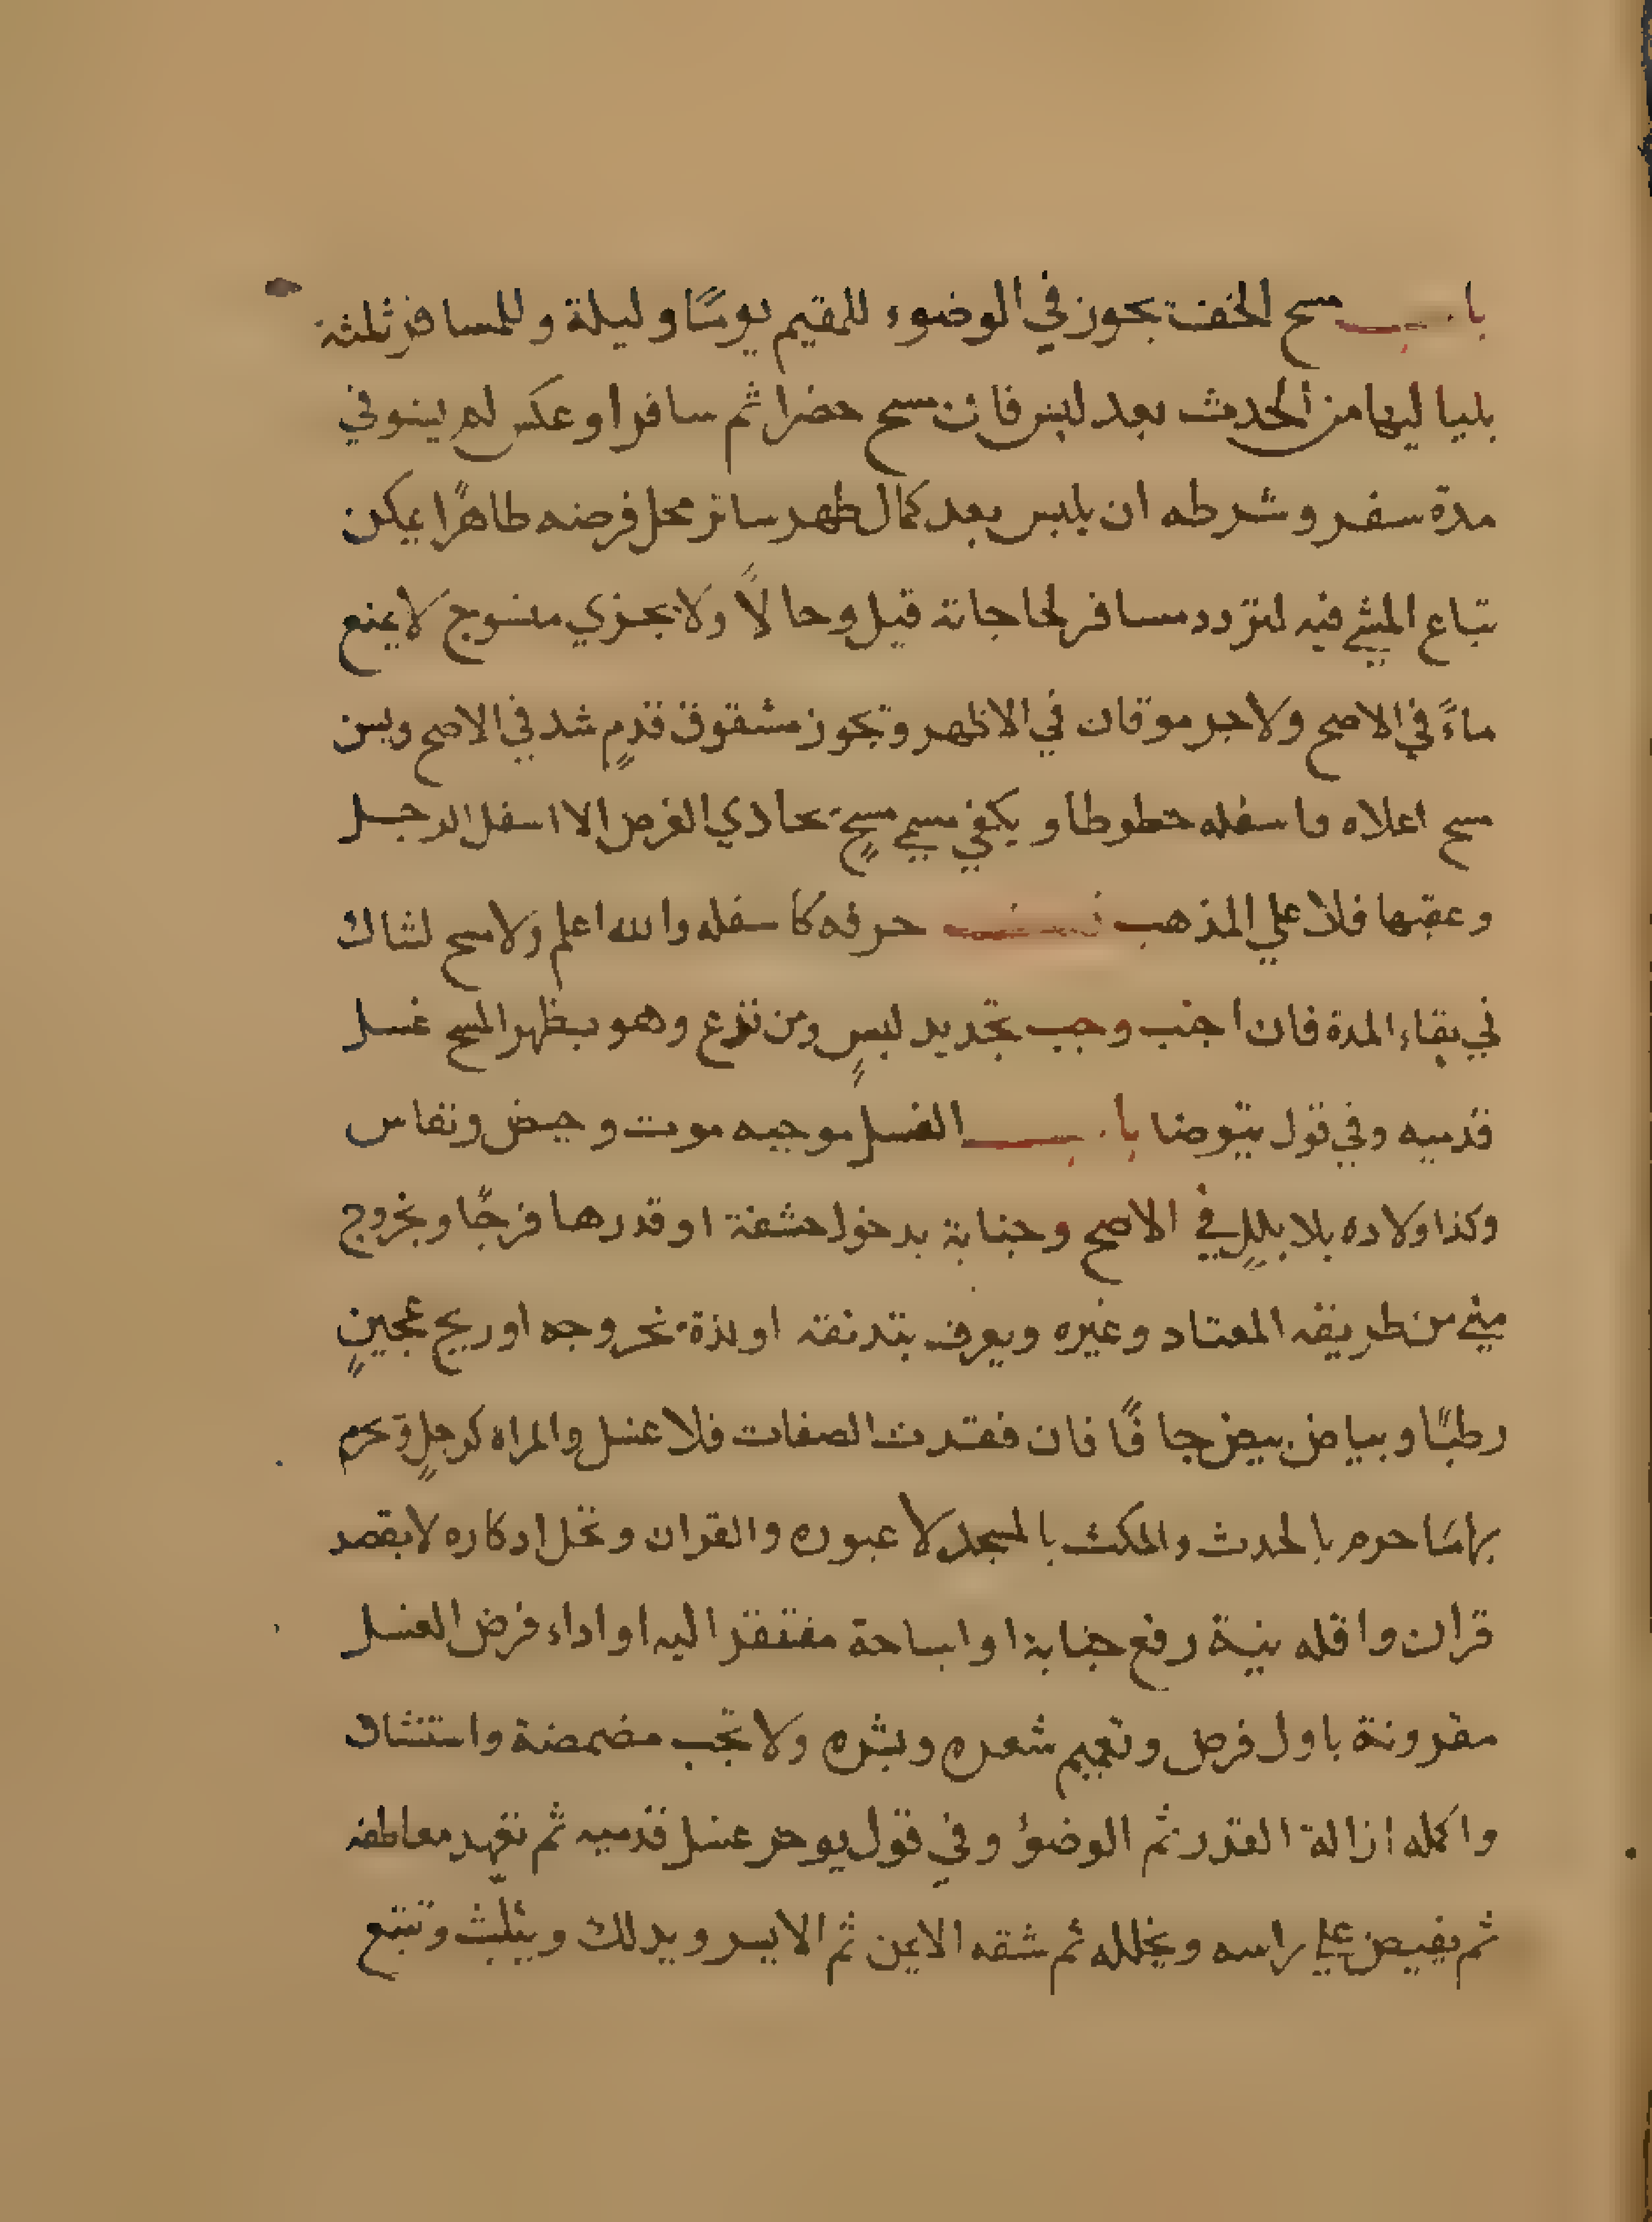 باب مسح الخف يجوز في الوضوء للمقيم يومًا وليلة وللمسافر ثلثة
بليا ليها من الحدث بعد لبس فان مسح حضرا ثم سافر او عكس لم يستوفي
مدة سفر وشرطه ان يلبس بعد كمال طهر ساتر محل فرضه طاهرًا يمكن
تباع المشي فيه لتردد مسافر لحاجاته قيل وحالاً ولا يجزي منسوج لا يمنع
ماءً في الاصح ولا جرموقان في الاظهر ويجوز مشقوق قدمٍ شد في الاصح ويسن
مسح اعلاه واسفله خطوطا ويكفي مسمي مسحٍ يحاذي الفرض الا اسفل الرجل
وعقبها فلا علي المذهب قلت حرفه كاسفله والله اعلم ولا مسح لشاك
في بقاء المدة فان اجنب وجب تجديد لبسٍ ومن نزع وهو بطهر المسح غسل
قدميه وفي قول يتوضا باب الغسل موجبه موت وحيض ونفاس
وكذا ولاده بلا بللٍ في الاصح وجنابة بدخول حشفة او قدرها فرجًا وبخروج
مني من طريقه المعتاد وغيره ويعرف بتدفقه او لذة بخروجه او ريح عجينٍ
رطبًا وبياض بيض جافًا فان فقدت الصفات فلا غسل والمراه كرجلٍ ويحرم
بها ما حرم بالحدث والمكث بالمسجد لا عبوره والقران وتحل اذكاره لا بقصد
قران واقله نية رفع جنابة او اباحة مفتقر اليه او اداء فرض الغسل
مقرونة باول فرض وتعميم شعره وبشره ولا تجب مضمضة واستنشاق
واكمله ازالة القذر ثم الوضوء وفي قول يوخر غسل قدميه ثم تعهد معاطفه
ثم يفيض علي راسه ويخلله ثم شقه الايمن ثم الايسر ويدلك ويثلث وتتبع